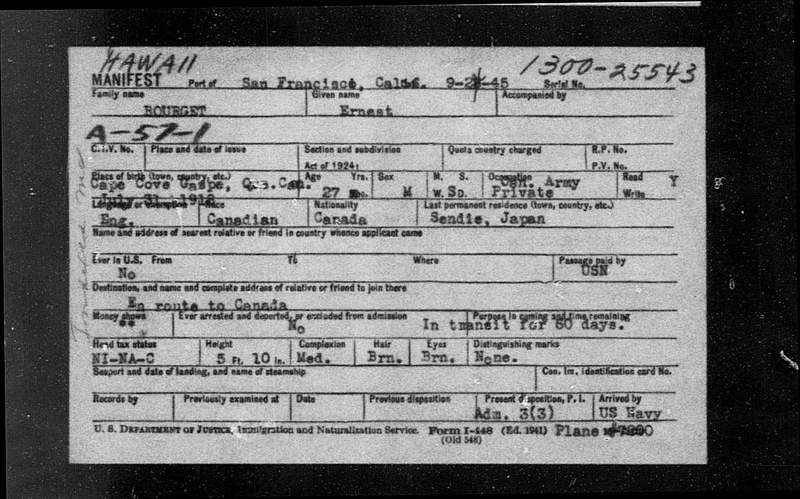 HAWAII
1300-25543
MANIFEST Port of San Francisco, Calif. 9-2 -45 Serial No.
Family name Given name Accompanied by
BOURGET Ernest
A-57-1
C.I.V. No. Place and date of issue Section and subdivision Quota country charged R.P. No.
Act of 1924: P.V. No.
Place of birth (town, country, etc.) Age Yrs. Sex M. S. Occupation Can. Army Read Y
Cape Cove Gaspe, Que.Can. 27 Mos. M W. SD. Private Write
July 31, 1918
Language or exemption Race Nationality Last permanent residence (town, country, etc.)
Eng. Canadian Canada Sendie, Japan
Name and address of nearest relative or friend in country whence applicant came
Ever in U.S. From To Where Passage paid by
No USN
Destination, and name and complete address of relative or friend to join there
En route to Canada
Money shown Ever arrested and deported, or excluded from admission Purpose in coming and time remaining
** No In transit for 60 days.
Head tax status Height Complexion Hair Eyes Distinguishing marks
NI-NA-C 5 Ft. 10 In. Med. Brn. Brn. None.
Seaport and date of landing, and name of steamship Con. Im. identification card No.
Records by Previously examined at Date Previous disposition Present disposition, P. I. Arrived by
Adm. 3(3) US Navy
U. S. DEPARTMENT OF JUSTICE, Immigration and Naturalization Service. Form I-448 (Ed. 1941) Plane
(Old 548)